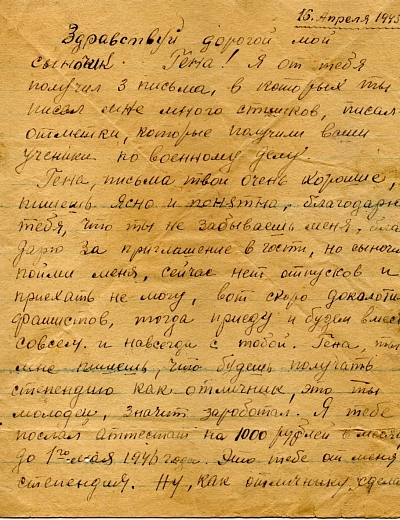 16. Апреля 1945
Здравствуй дорогой мой
сыночик. Гена! Я от тебя
получил 3 письма, в которых ты
писал мне много стишков писал
отметки, которые получили ваши
ученики по военному делу.
Гена, письма твои очень хорошие,
пишешь Ясно и понятно, благодарю
тебя, что ты не забываешь меня, бла
дарю за приглашение в гости, но сыночик
пойми меня, сейчас нет отпусков и
приехать не могу, вот скоро доколоти
фрашистов, тогда приеду и будем вмес
совсем и навсегда с тобой. Гена, ты
мне пишешь, что будешь получать
степендию как отличник, это ты
молодец, значит заработал. Я тебе
послал аттестат на 1000 рублей в месяц
до 1го мая 1946 года. Это тебе от меня
степендия. Ну, как отличнику сдела